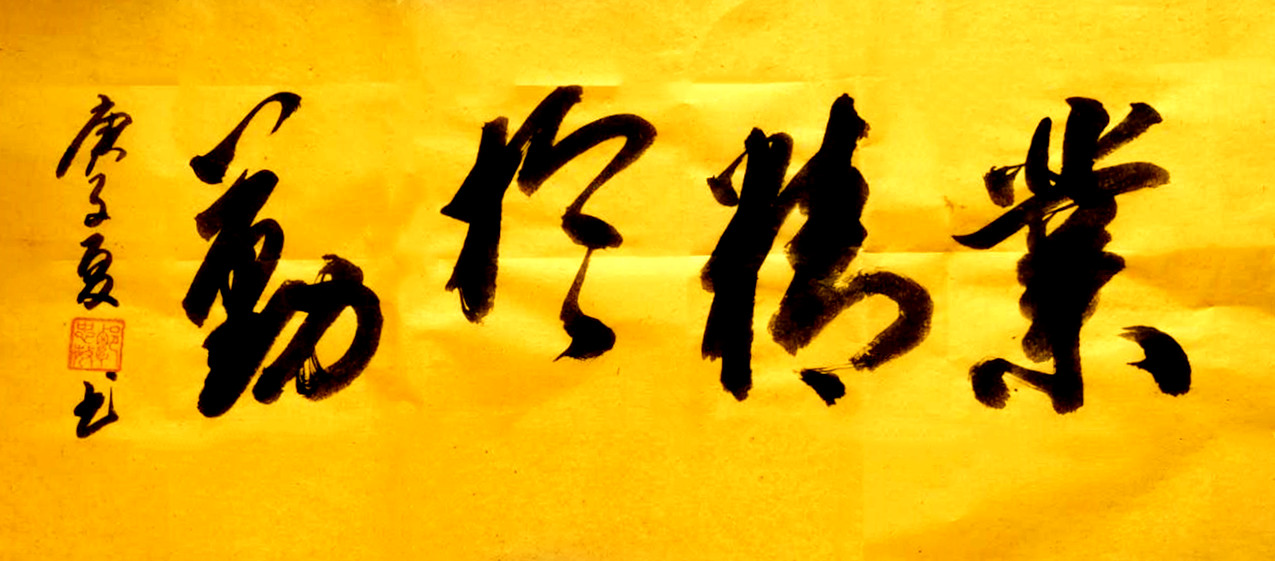 業精於勤
庚子夏
书